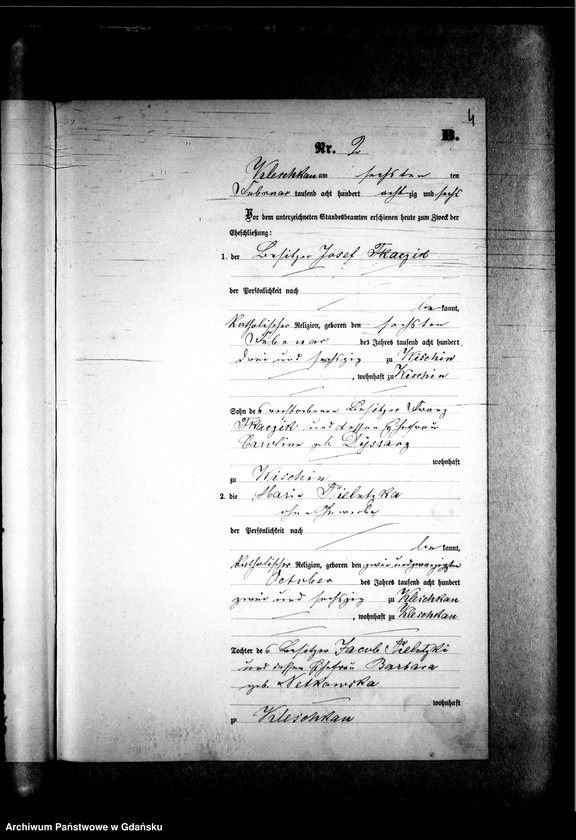 4
B.
Nr. 2
Kleschkau am sechsten ten
Februar tausend acht hundert achtzig und sechs
Vor dem unterzeichneten Standesbeamten erschienen heute zum Zweck der
Eheschließung:
1. der Besitzer Josef Tkaczik
der Persönlichkeit nach
bekannt,
katholischer Religion, geboren den sechsten
Februar des Jahres tausend acht hundert
drei und sechszig zu Kischin
, wohnhaft zu Kischin
Sohn des verstorbenen Besitzer Franz
Tkaczik und dessen Ehefrau
Caroline geb.
wohnhaft
zu Kischin
2. die Maria Pielutzka
ohne Gewerbe
der Persönlichkeit nach
bekannt,
katholischer Religion, geboren den zwei und zwanzigsten
October des Jahres tausend acht hundert
zwei und sechszig zu Kleschkau
, wohnhaft zu Kleschkau
Tochter des Besitzer Jacob Pielutzki
und dessen Ehefrau Barbara
geb. Netkowska
wohnhaft
zu Kleschkau
Archiwum Państwowe w Gdańsku